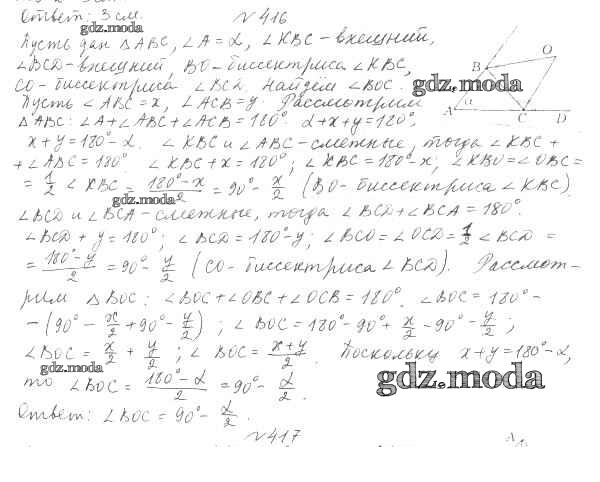 Ответ: 3 см.
№ 416
gdz.moda
Пусть дан △ABC, ∠A = α, ∠KBC - внешний,
∠BCD - внешний, BO - биссектриса ∠KBC,
CO - биссектриса ∠BCD. Найдём ∠BOC.
gdz.moda
Пусть ∠ABC = x, ∠ACB = y. Рассмотрим
△ABC: ∠A + ∠ABC + ∠ACB = 180°. α + x + y = 180°,
x + y = 180° - α. ∠KBC и ∠ABC - смежные, тогда ∠KBC +
+ ∠ABC = 180° ∠KBC + x = 180°; ∠KBC = 180° - x; ∠KBO = ∠OBC =
= 1/2 ∠KBC = (180° - x)/2 = 90° - x/2 (BO - биссектриса ∠KBC).
gdz.moda
∠BCD и ∠BCA - смежные, тогда ∠BCD + ∠BCA = 180°.
∠BCD + y = 180°; ∠BCD = 180° - y; ∠BCO = ∠OCD = 1/2 ∠BCD =
= (180° - y)/2 = 90° - y/2 (CO - биссектриса ∠BCD). Рассмот-
рим △BOC: ∠BOC + ∠OBC + ∠OCB = 180°. ∠BOC = 180° -
- (90° - x/2 + 90° - y/2); ∠BOC = 180° - 90° + x/2 - 90° - y/2;
∠BOC = x/2 + y/2; ∠BOC = (x + y)/2. Поскольку x + y = 180° - α,
gdz.moda
то ∠BOC = (180° - α)/2 = 90° - α/2.
gdz.moda
Ответ: ∠BOC = 90° - α/2.
№ 417
B
O
A
α
C
D